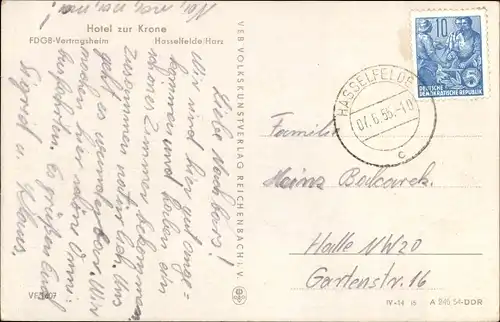 Hotel zur Krone
FDGB-Vertragsheim Hasselfelde/Harz
Liebe Nachbars!
Wir sind hier gut ange=
kommen und haben ein
schönes Zimmer bekommen
zusammen natürlich. Uns
geht es wunderbar. Wir
machen hier allen Omni-
busfahrten. Es grüßen Euch
Sigrid u. Klaus.
Na, na, na, na!
VEB VOLKSKUNSTVERLAG REICHENBACH i. V.
10
5
DEUTSCHE
DEMOKRATISCHE REPUBLIK
HASSELFELDE
07.6.55.-10
c
Familie
Heinz
Halle NW20
Gartenstr. 16
IV-14 A 246 54-DDR